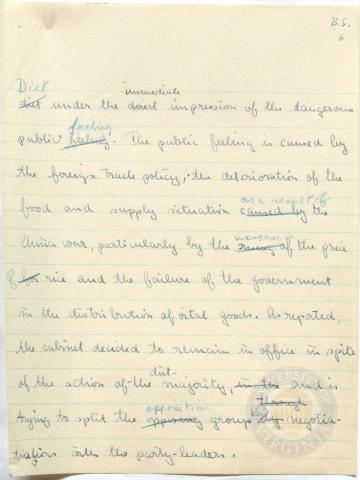 B.S.
6
Diet immediate
diet under the direct impression of the dangerous
feeling
public feeling. The public feeling is caused by
the foreign trade policy, the deterioration of the
as a result of
food and supply situation caused by the
increase in
China war, particularly by the rising of the price
of for rice and the failure of the government
in the distribution of vital goods. As reported,
the cabinet decided to remain in office in spite
diet-
of the action of the majority, in the and is
opposition through
trying to split the opposing groups by negotia-
tiations with the party-leaders.